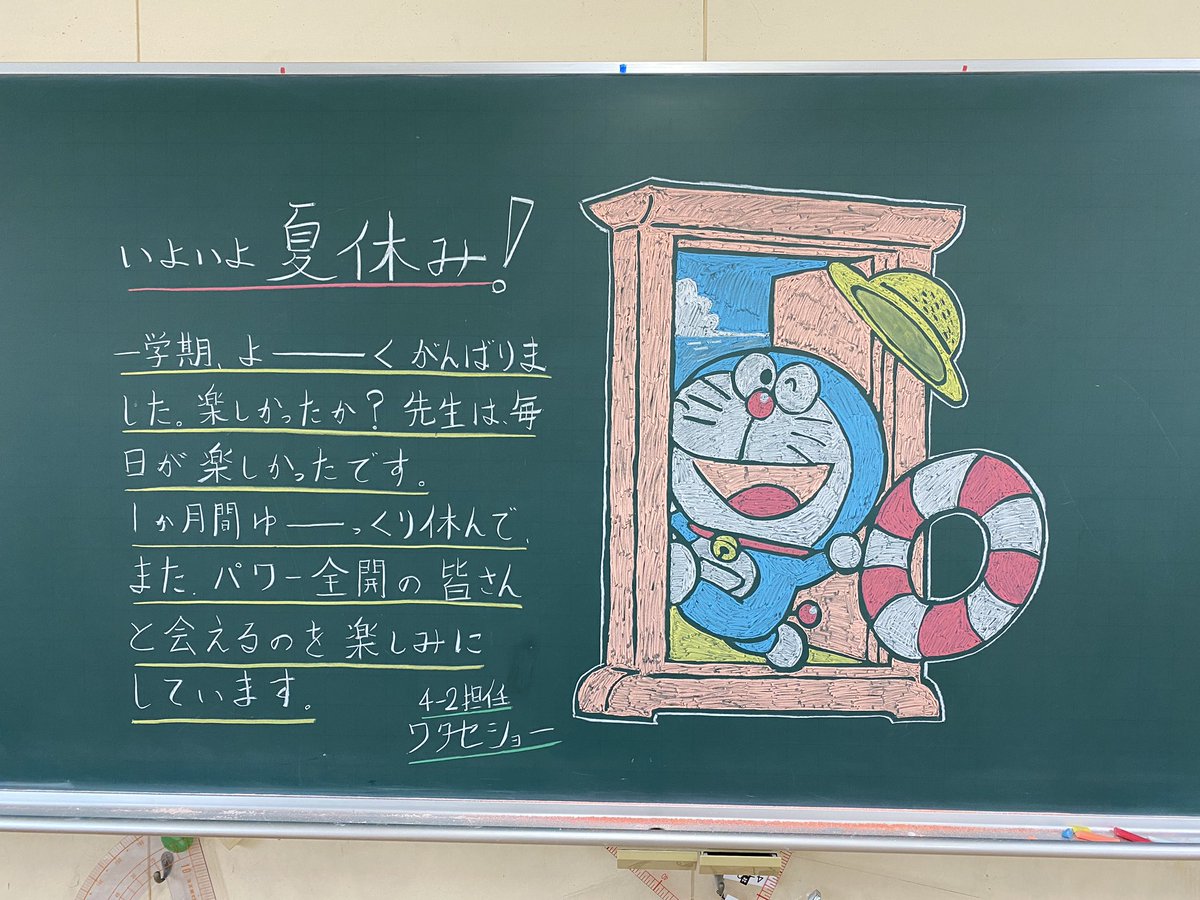 いよいよ夏休み!
一学期、よ———くがんばりま
した。楽しかったか?先生は、毎
日が楽しかったです。
1か月間ゆ——っくり休んで、
また、パワー全開の皆さん
と会えるのを楽しみに
しています。
4-2担任
ワタセショー